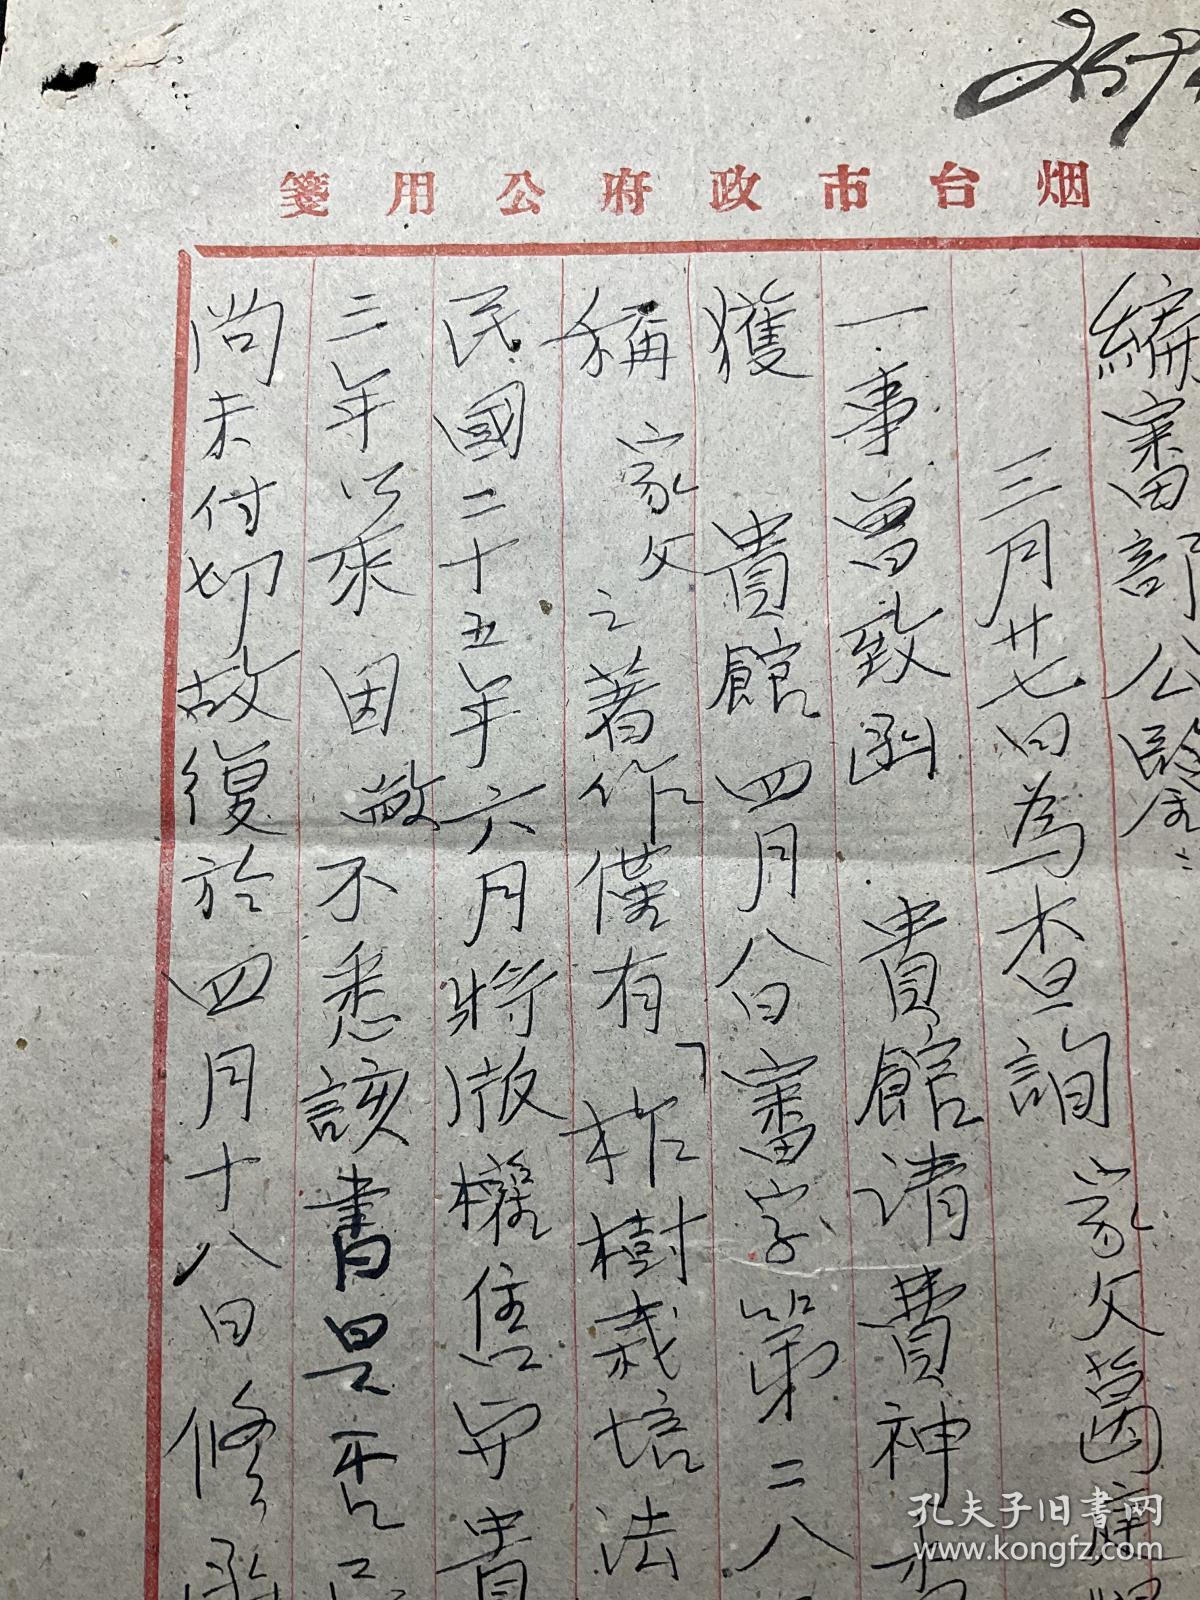 烟台市政府公用箋
編審部公鑒：
三月廿七日為查詢 家父茵庭
一事曾致函 貴館請費神
獲 貴館四月八日審字第二八
稱 家父之著作僅有「柞樹栽培法
民國二十五年六月將版權售与貴
三年以來因敝不悉該書是否已
尚未付印故復於四月十八日修函
孔夫子旧書网
www.kongfz.com